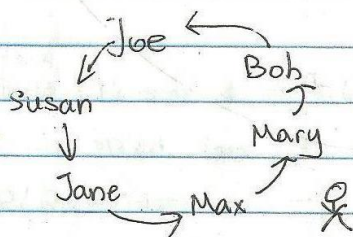 Joe
Bob
Susan
Mary
Jane
Max